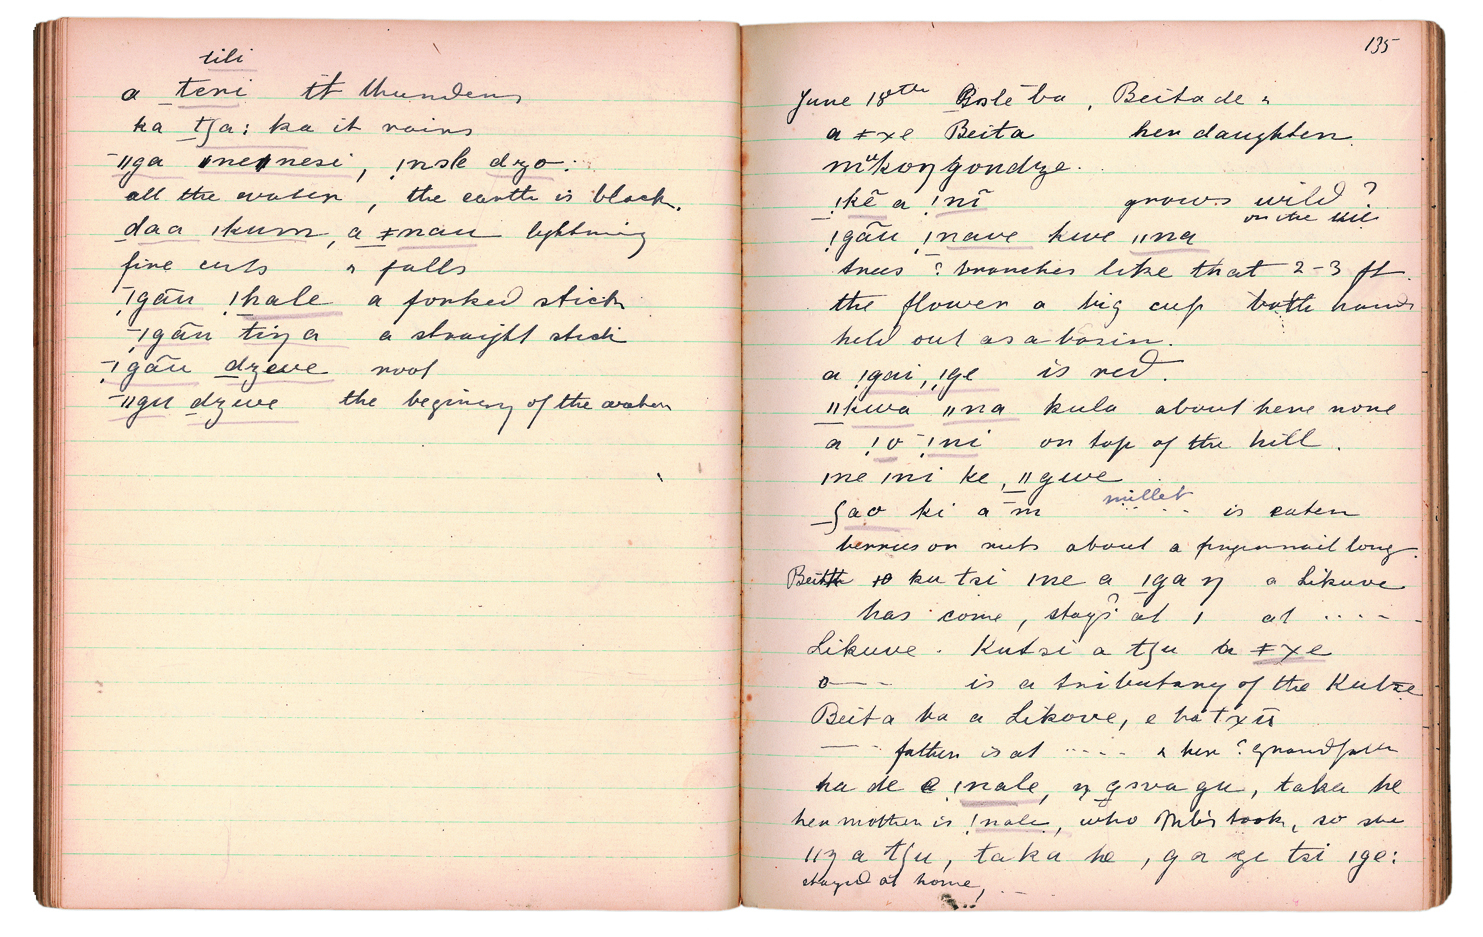 tili
a teni it thunders
ka tʃa: ka it rains
ǁga ǀnesi, ǃnsle dzo:
all the water, the earth is black.
daa ǀkum, a ǂnau lightning
fire cuts " falls
ǃgãu ǃhale a forked stick
ǃgãu tiŋa a straight stick
ǃgãu dzeve root
ǁgu dzeve the beginning of the water
135
June 18th ba, Beita de "
a ǂxe Beita her daughter.
ǃkẽ a ǃnĩ grows wild?
on the hill
ǃgãu ǃnave kwe ǁna
trees ? branches like that 2-3 ft.
the flower a big cup both hands
held out as a basin.
a ǃgai, ǃge is red.
ǁkwa ǁna kula about here none
a ǃo ǃni on top of the hill.
ǀne ǀni ke, ǁgwe
millet
ʃao ki a m is eaten
berries or nuts about a fingernail long.
ku tsi ǀne a ǀga ŋ a Likuve
has come, stays? at ǀ at ....
Likuve. Kutsi a tʃu a ǂxe
o— - is a tributary of the Kutse
Beita ba a Likove, e ba txũ
— - father is at .... & her ? grandfather
ha de e ǃnale, ŋ gsva gu, taka he
her mother is ǃnale, who took, so she
ǁŋa tʃu, taka he, ga ze tsi ǀge:
stayed at home,